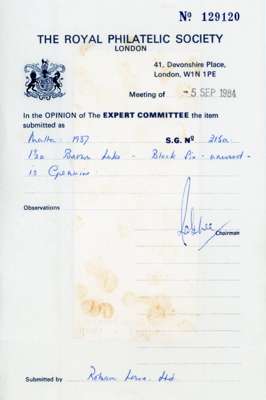 Nº 129120
THE ROYAL PHILATELIC SOCIETY
LONDON
41, Devonshire Place,
London, W1N 1PE
Meeting of -5 SEP 1984
In the OPINION of The EXPERT COMMITTEE the item
submitted as
Malta 1957 S.G. Nº 215a
Brown Lake - Block six - unused -
is Genuine
Chairman
Observations
Submitted by Robson Lowe Ltd